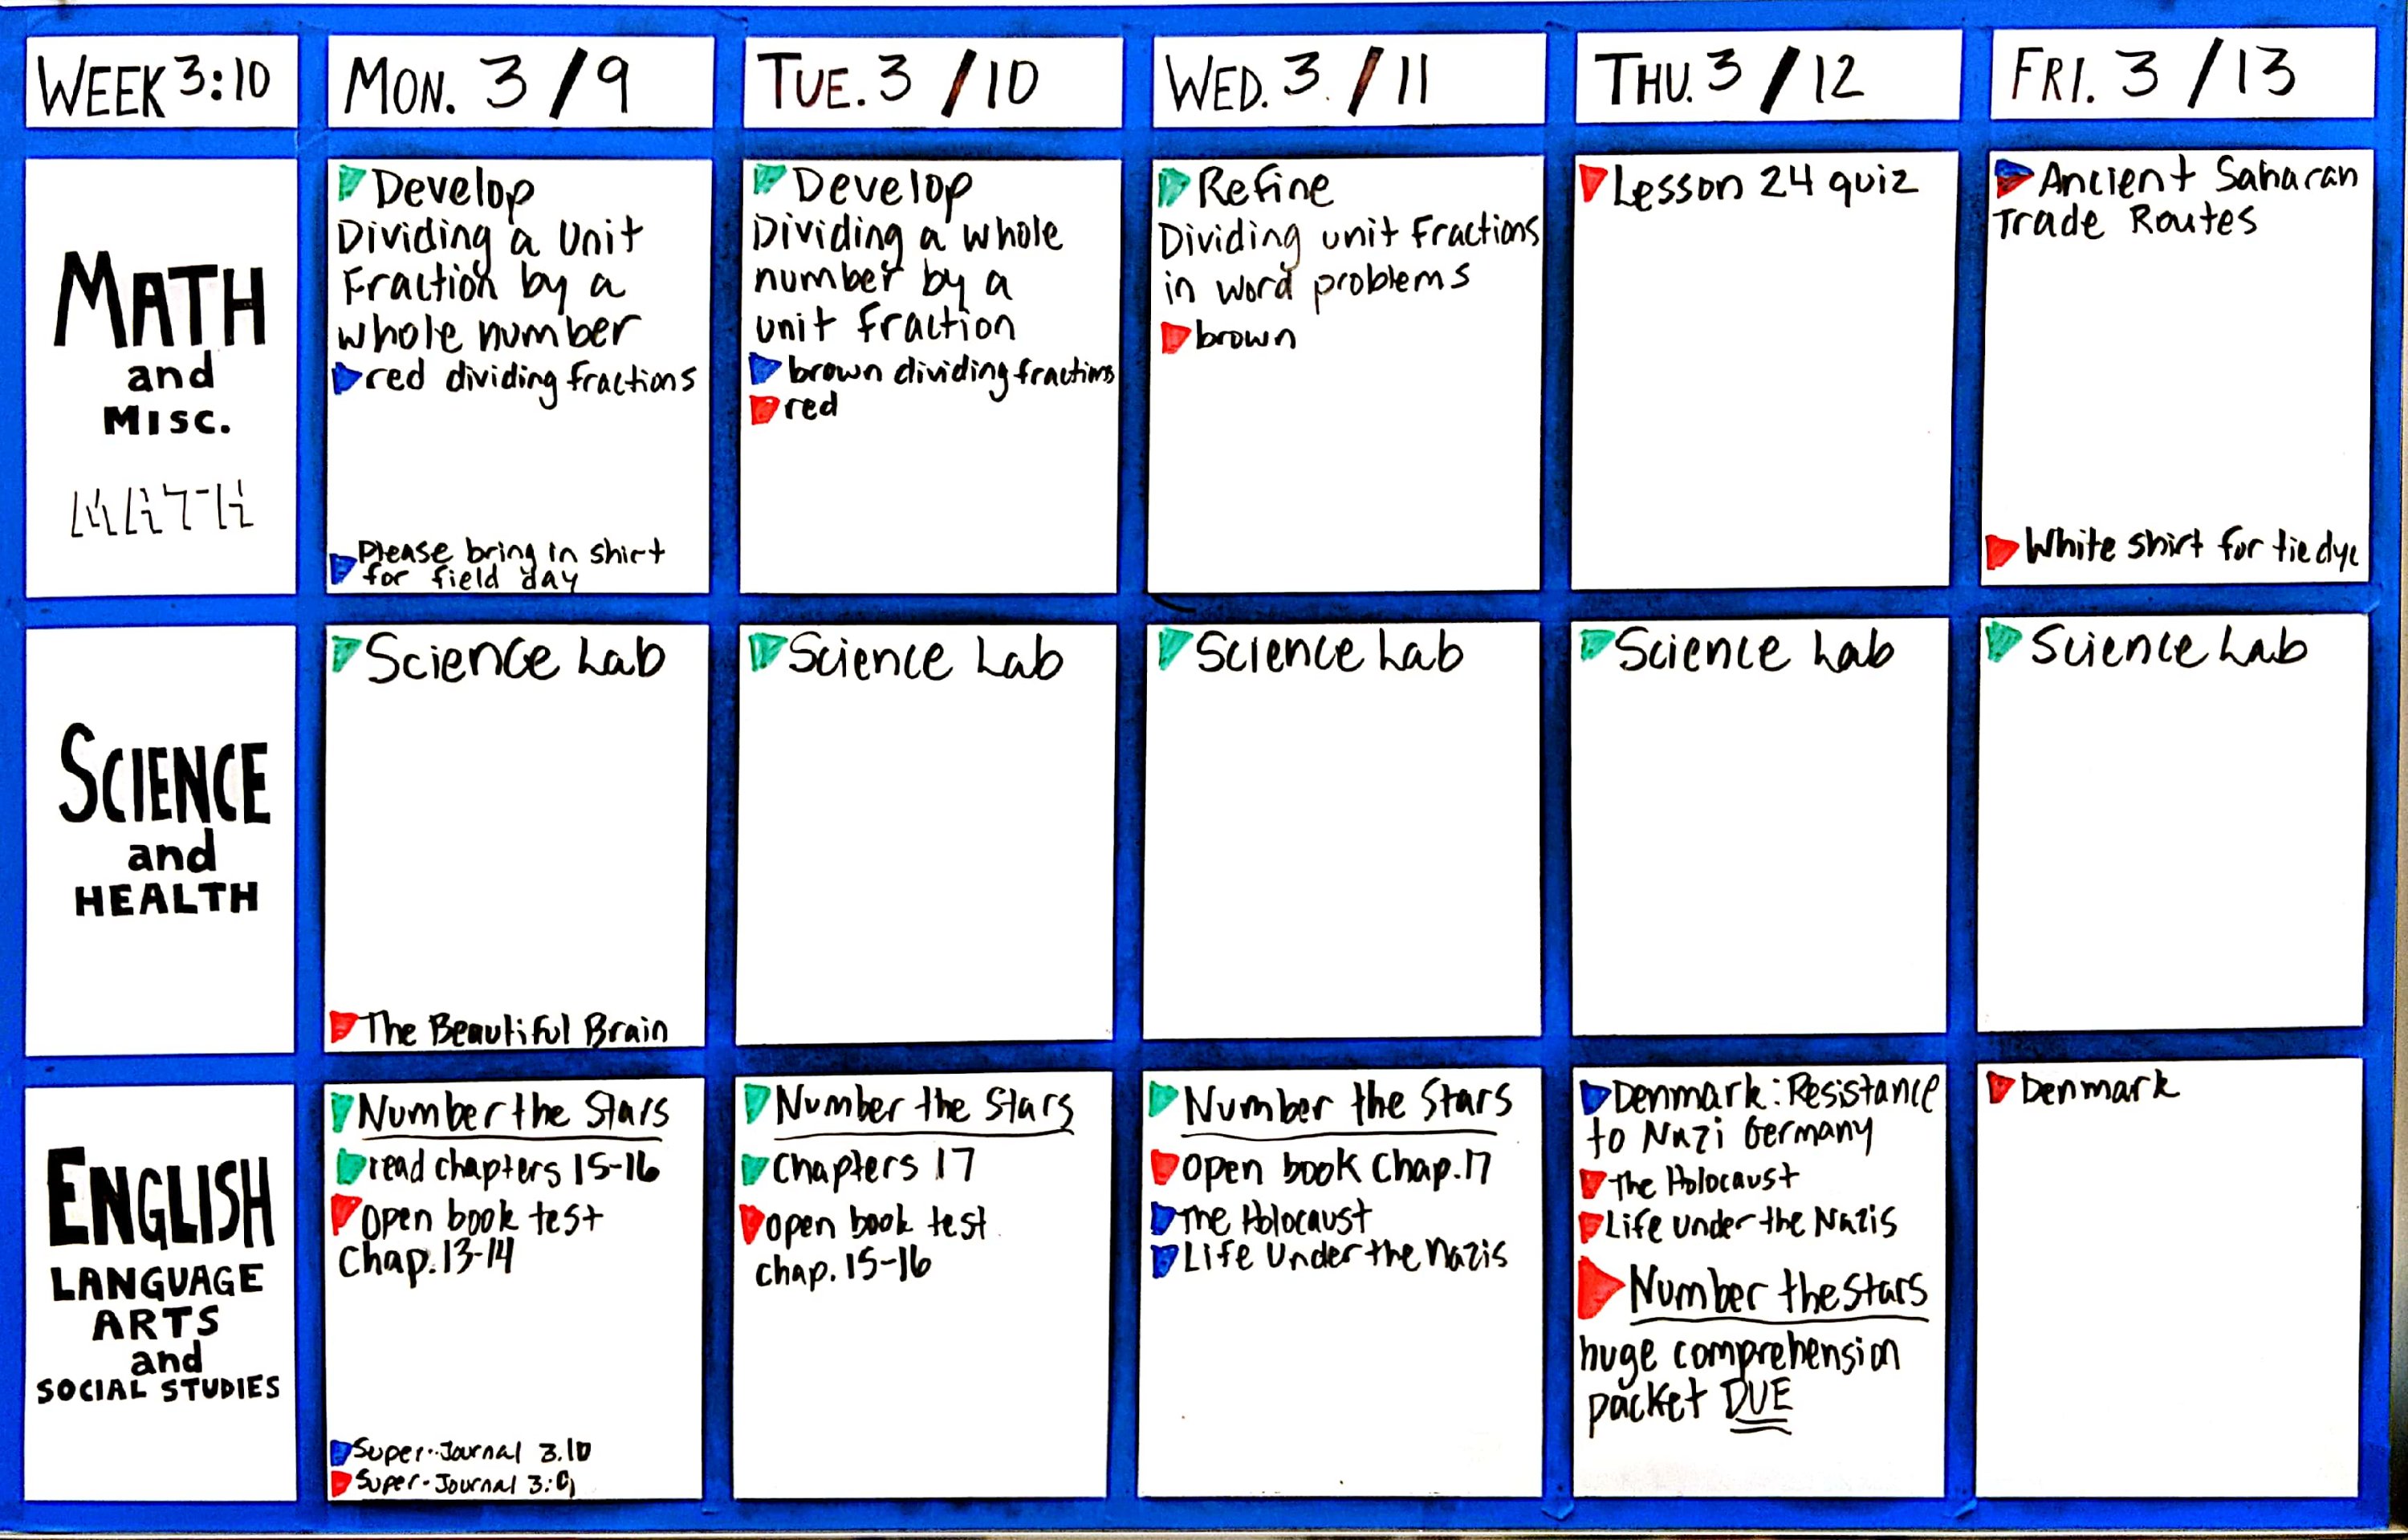 WEEK 3:10
MON. 3/9
TUE. 3/10
WED. 3/11
THU. 3/12
FRI. 3/13
MATH
and
MISC.
MATH
Develop
Dividing a Unit
Fraction by a
whole number
red dividing fractions
Please bring in shirt
for field day
Develop
Dividing a whole
number by a
unit fraction
brown dividing fractions
red
Refine
Dividing unit fractions
in word problems
brown
Lesson 24 quiz
Ancient Saharan
Trade Routes
White shirt for tie dye
SCIENCE
and
HEALTH
Science Lab
The Beautiful Brain
Science Lab
Science Lab
Science Lab
Science Lab
ENGLISH
LANGUAGE
ARTS
and
SOCIAL STUDIES
Number the Stars
read chapters 15-16
Open book test
Chap. 13-14
Super-Journal 3.10
Super-Journal 3:9
Number the Stars
Chapters 17
open book test
chap. 15-16
Number the Stars
Open book Chap. 17
The Holocaust
Life Under the Nazis
Denmark: Resistance
to Nazi Germany
The Holocaust
Life under the Nazis
Number the Stars
huge comprehension
packet DUE
Denmark